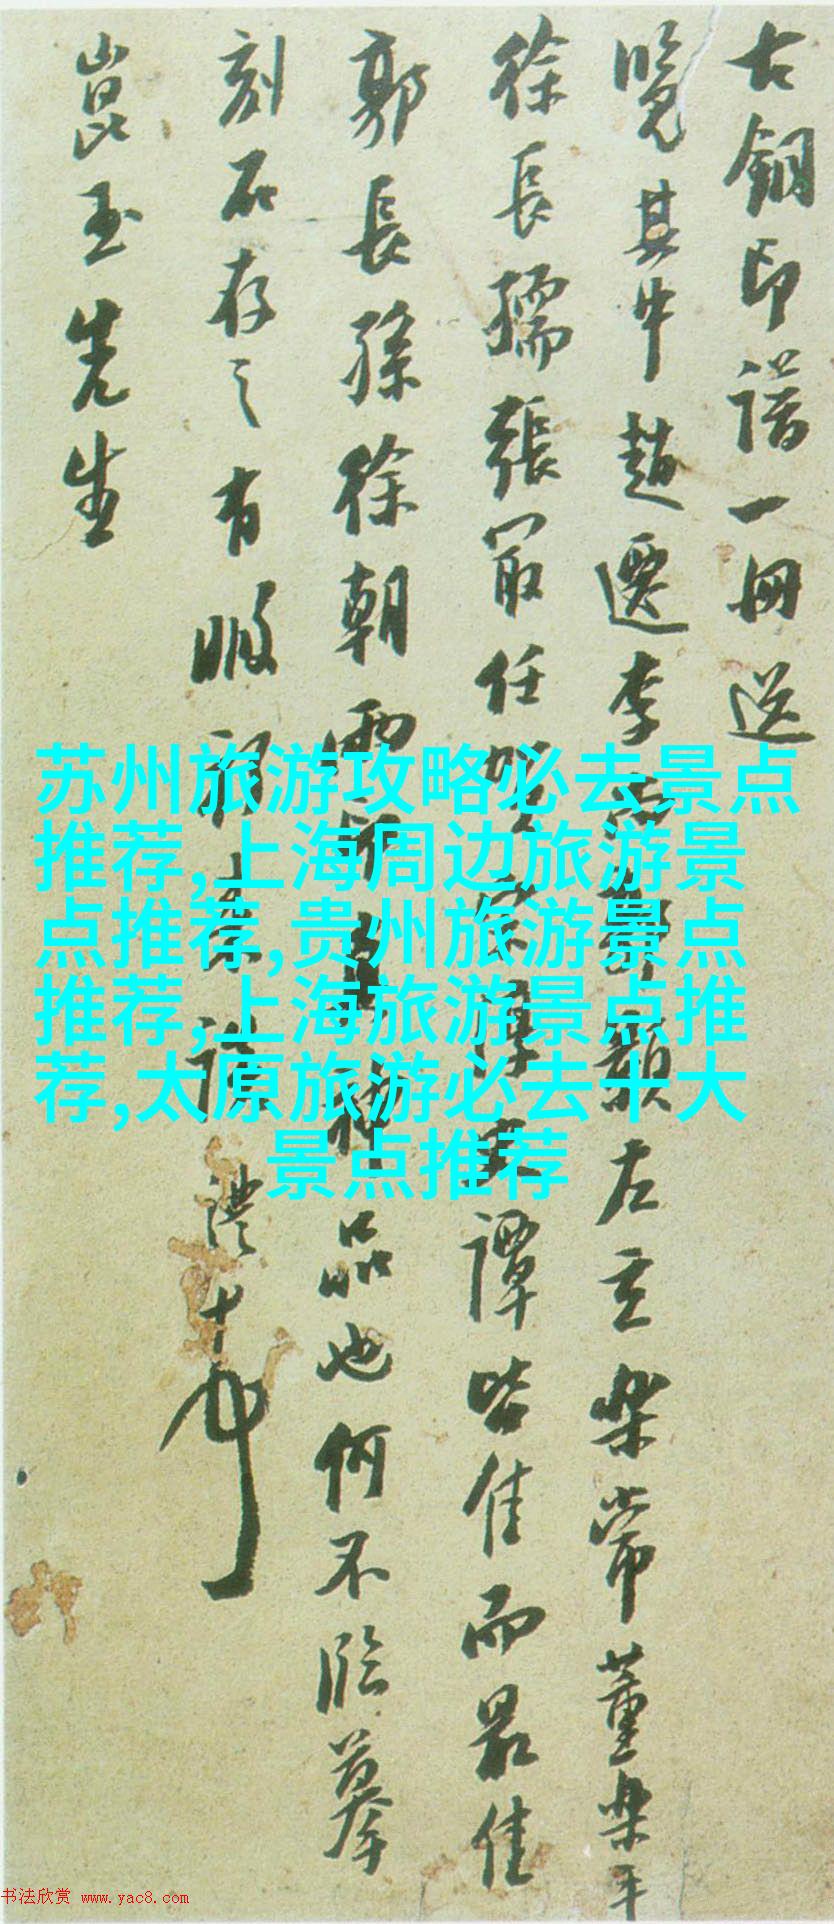 古銅印譜一冊送
覽其中趙遷李左玄樂常董樂平
徐長孺張冣任賀譚皆佳而最佳
郭長孫徐朝兩品也何不臨摹
刻石存之有暇祈來談澧
崑玉先生
苏州旅游攻略必去景点
推荐,上海周边旅游景
点推荐,贵州旅游景点
推荐,上海旅游景点推
荐,太原旅游必去十大
景点推荐
书法欣赏 www.yac8.com